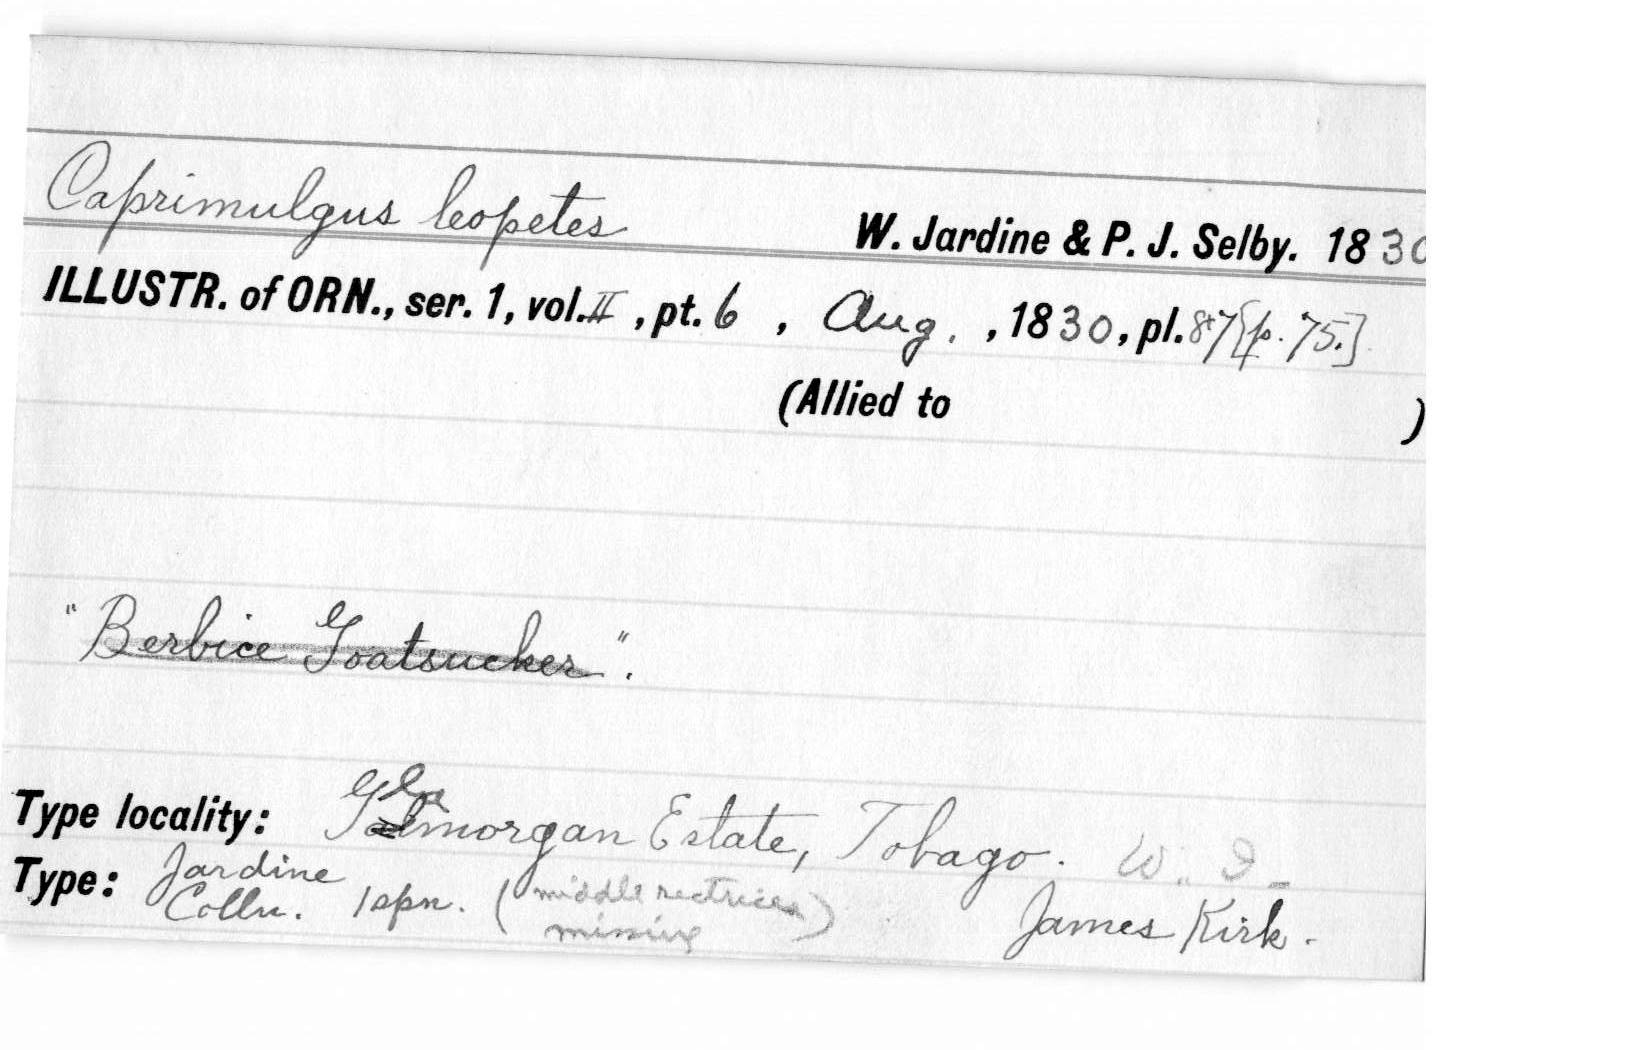 Caprimulgus leopetes W. Jardine & P. J. Selby. 1830
ILLUSTR. of ORN., ser. 1, vol. II, pt. 6, Aug., 1830, pl. 87 [p. 75.]
(Allied to )
"Berbice Goatsucker".
Type locality: Glenmorgan Estate, Tobago. W. I.
Type: Jardine Colln. 1 spn. (middle rectrices missing) James Kirk.